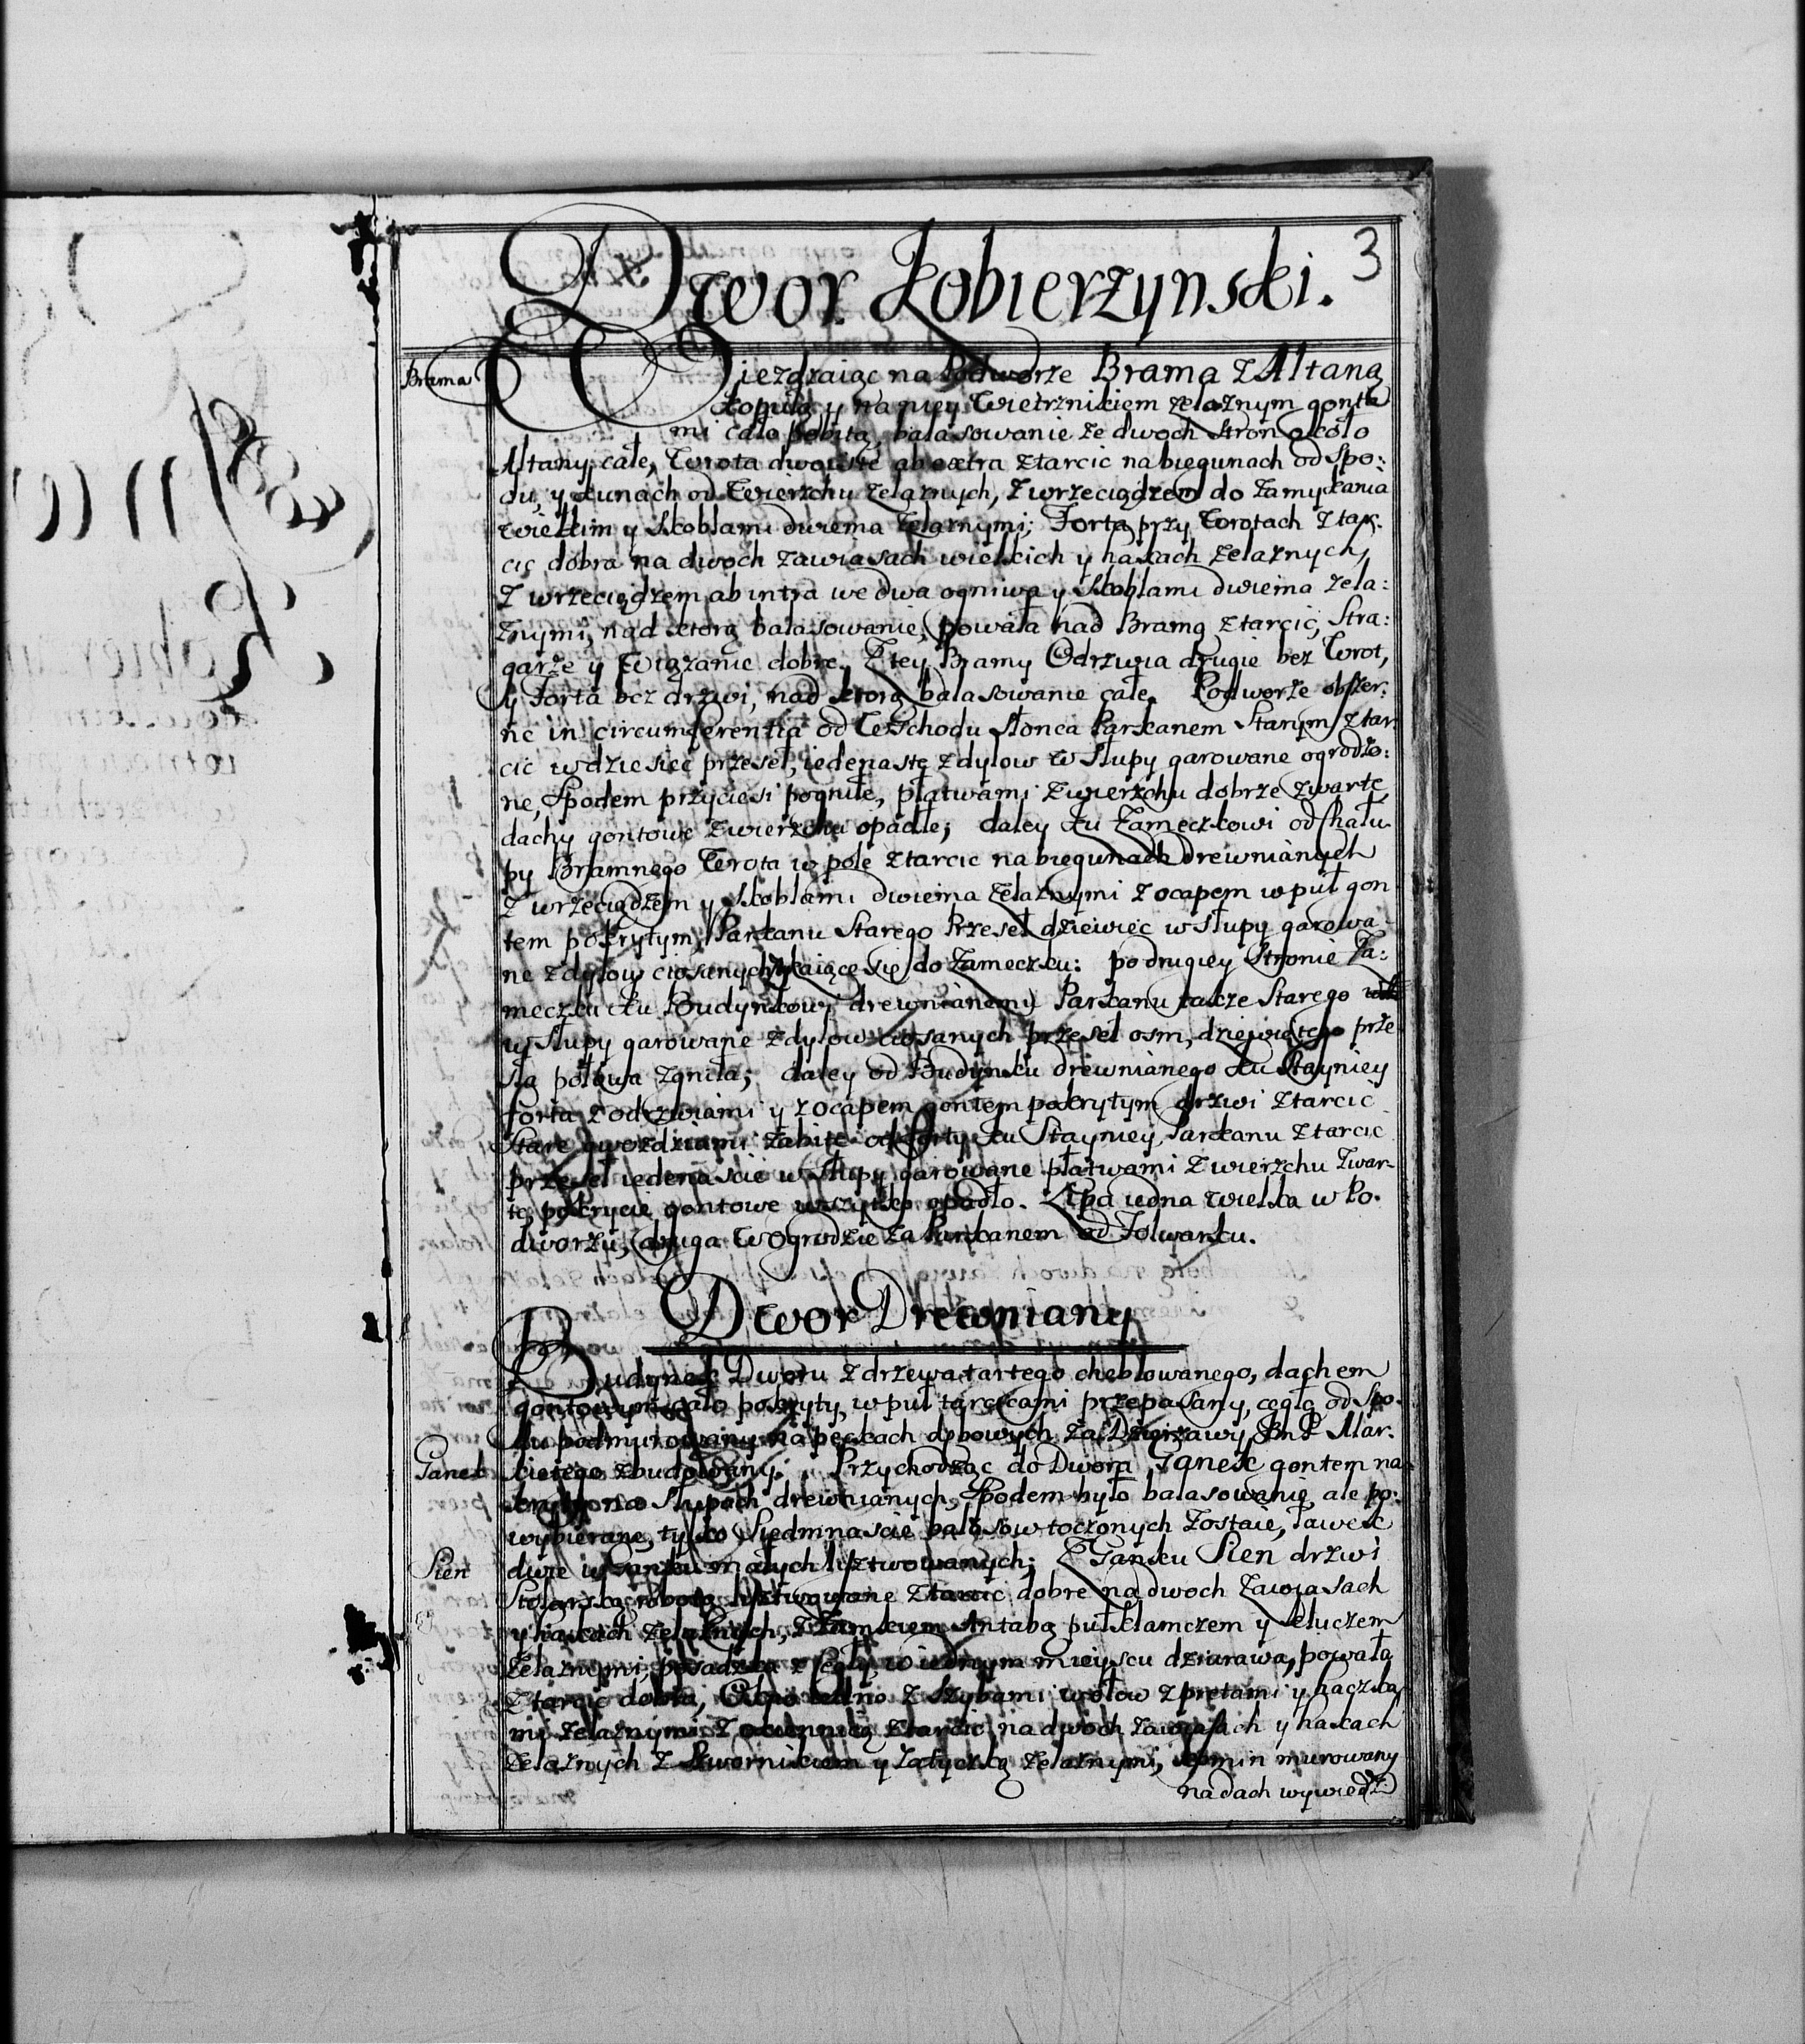 3
Dwor Kobierzynski.
Brama
Wiezdzaiąc na Podworze Brama z Altaną
kopułą y na niey Wietrznikiem żelaznym gonta
mi cało pobita, balasowanie ze dwoch stron około
Altany całe, Wrota dwoiste ab extra z tarcic na biegunach od spo:
du, y kunach od Wierzchu żelaznych, z wrzeciądzem do zamykania
wielkim y skoblami dwiema żelaznymi; Forta przy Wrotach z tar:
cic dobra na dwoch zawiasach wielkich y hakach żelaznych,
z wrzeciądzem ab intra we dwa ogniwa y skoblami dwiema żela:
znymi, nad ktorą balasowanie, powała nad Bramą z tarcic, Stra:
garze y Wiązanie dobre. Z tey Bramy Odrzwia drugie bez Wrot,
y Forta bez drzwi, nad ktorą balasowanie całe. Podworze obszer:
ne in circumferentia od Wschodu Słonca Parkanem Starym z tar
cic w dziesięc przeseł, iedenaste z dylow w Słupy garowane ogrodzo:
ne, Spodem przyciesi pogniłe, płatwami z wierzchu dobrze zwarte,
dachy gontowe z wierzchu opadłe; daley ku Zameczkowi od Chału
py Bramnego Wrota w pole z tarcic na biegunach drewnianych
z wrzeciądzem y Skoblami dwiema żelaznymi z ocapem w puł gon
tem pokrytym, Parkanu Starego Przeseł dziewięc w słupy garowa
ne z dylow ciosanych tykaiące się do Zameczku: po drugiey Stronie Za:
meczku ku Budynkowi drewnianemu Parkanu także Starego
w Słupy garowane z dylow ciosanych przeseł osm, dziewiątego prze
sła połowa zgniła; daley od Budynku drewnianego ku Stayniey
forta z odrzwiami y z ocapem gontem pokrytym drzwi z tarcic
Stare gwozdziami zabite od Forty ku Stayniey Parkanu z tarcic
przeseł iedenascie w słupy garowane płatwami z wierzchu zwar-
te, pokrycie gontowe wszytko opadło. Lipa iedna wielka w Po.
dworzu, druga w Ogrodzie za Parkanem od Folwarku.
Dwor Drewniany
Budynek Dworu z drzewa tartego cheblowanego, dachem
gontowym cało pokryty, w puł tarcicami przepasany, cegłą od Spo.
du podmurowany na peckach dębowych za Dzierżawy Mar.
ckiego zbudowany. Przychodząc do Dwora Ganek gontem na
Ganek
Słupach drewnianych, Spodem było balasowanie, ale po:
wybierane, tylko Siedmnascie balasow toczonych zostaie, Ławek
Sien
dwie w Ganku małych lisztwowanych; Z Ganku Sien drzwi
Stolarską robotą lisztwowane z tarcic dobre na dwoch Zawiasach
y hakach żelaznych, z Zamkiem Antabą puł klamczem y kluczem
żelaznemi, posadzka z Cegły, w iednym mieyscu dziurawa, powała
z tarcic dobra, Okno iedno z Szybami w ołow z prętami y haczka
mi żelaznymi z okiennicą z tarcic na dwoch zawiasach y hakach
żelaznych z Skwornikiem y zatyczką żelaznymi, komin murowany
na dach wywiedzi